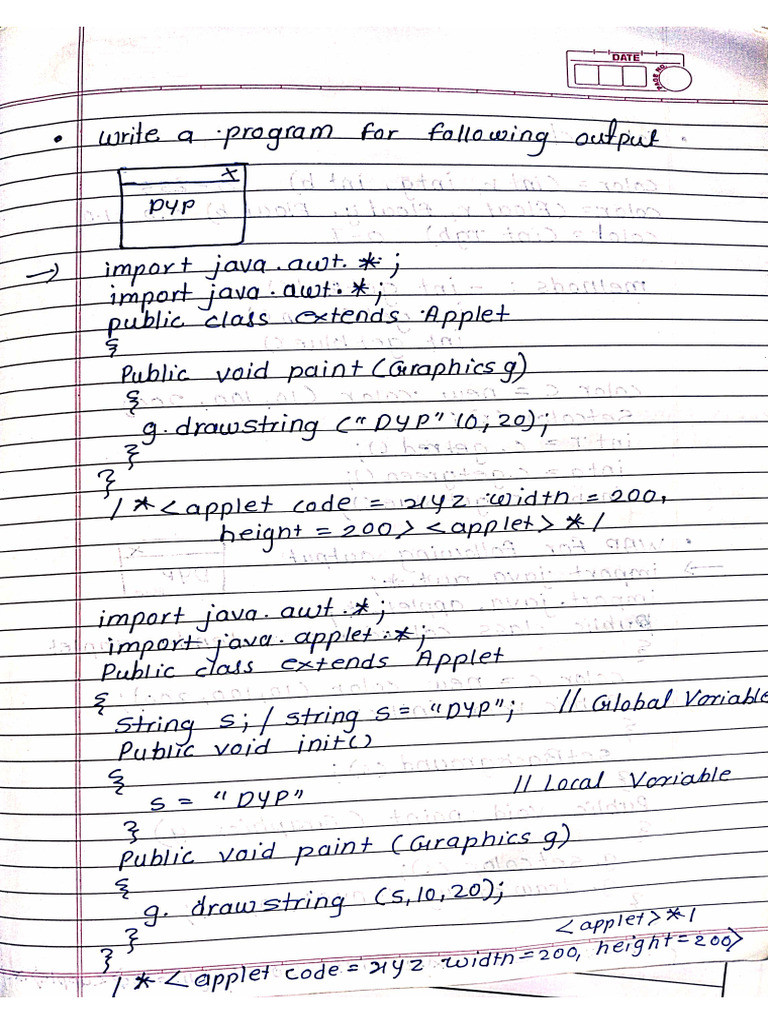 DATE
PAGE NO.
• write a program for following output.
X
DYP
→ import java.awt.*;
import java.awt.*;
public class extends Applet
{
Public void paint (Graphics g)
{
g.drawstring ("DYP" 10, 20);
}
}
/*<applet code = xyz width = 200,
height = 200> <applet>*/
import java.awt.*;
import java.applet.*;
Public class extends Applet
{
String s; / string s = "DYP"; // Global Variable
Public void init()
{
s = "DYP" // Local Variable
}
Public void paint (Graphics g)
{
g. drawstring (s,10,20);
}
}
<applet>*/
/*<applet code = xyz width=200, height=200>